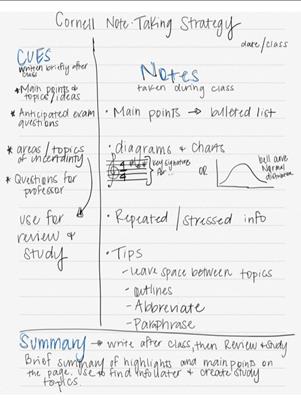 Cornell Note-Taking Strategy
date/class
CUES
written briefly after
class
* Main points &
topics/ideas
* Anticipated exam
questions
* areas/topics
of uncertainty
* Questions for
professor
use for
review &
study
Notes
taken during class
• Main points → bulleted list
• diagrams & Charts
key signature
for...
OR
bell curve
Normal
distribution
• Repeated/stressed info
• Tips
- leave space between topics
- outlines
- Abbreviate
- Paraphrase
Summary → write after class, then Review & study
Brief summary of highlights and main points on
the page. Use to find info later & create study
topics.